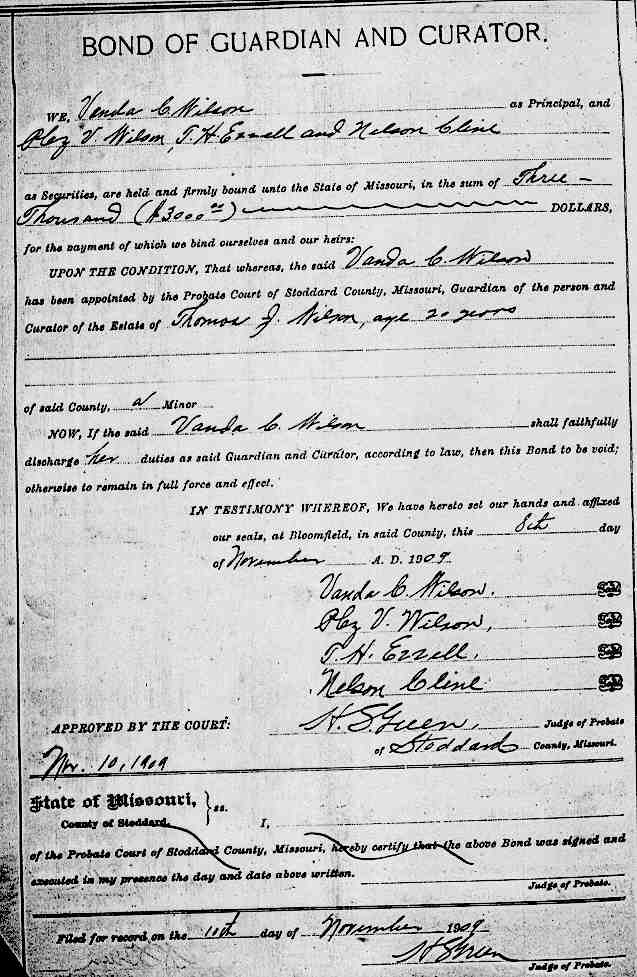 BOND OF GUARDIAN AND CURATOR.
WE, Vanda C. Wilson as Principal, and
Plez V. Wilson, T. H. Ezzell and Nelson Cline
as Securities, are held and firmly bound unto the State of Missouri, in the sum of Three –
Thousand ($3000 00) DOLLARS,
for the payment of which we bind ourselves and our heirs:
UPON THE CONDITION, That whereas, the said Vanda C. Wilson
has been appointed by the Probate Court of Stoddard County, Missouri, Guardian of the person and
Curator of the Estate of Thomas J. Wilson, age 20 years
of said County, a Minor
NOW, If the said Vanda C. Wilson shall faithfully
discharge her duties as said Guardian and Curator, according to law, then this Bond to be void;
otherwise to remain in full force and effect.
IN TESTIMONY WHEREOF, We have hereto set our hands and affixed
our seals, at Bloomfield, in said County, this 8th day
of November A. D. 1909.
Vanda C. Wilson. Seal
Plez V. Wilson, Seal
T. H. Ezzell, Seal
Nelson Cline Seal
APPROVED BY THE COURT: H. S. Green, Judge of Probate
of Stoddard County, Missouri.
Nov. 10, 1909
State of Missouri, } ss.
County of Stoddard. I,
of the Probate Court of Stoddard County, Missouri, hereby certify that the above Bond was signed and
executed in my presence the day and date above written.
Judge of Probate.
Filed for record on the 10th day of November 1909
H S Green
Judge of Probate.